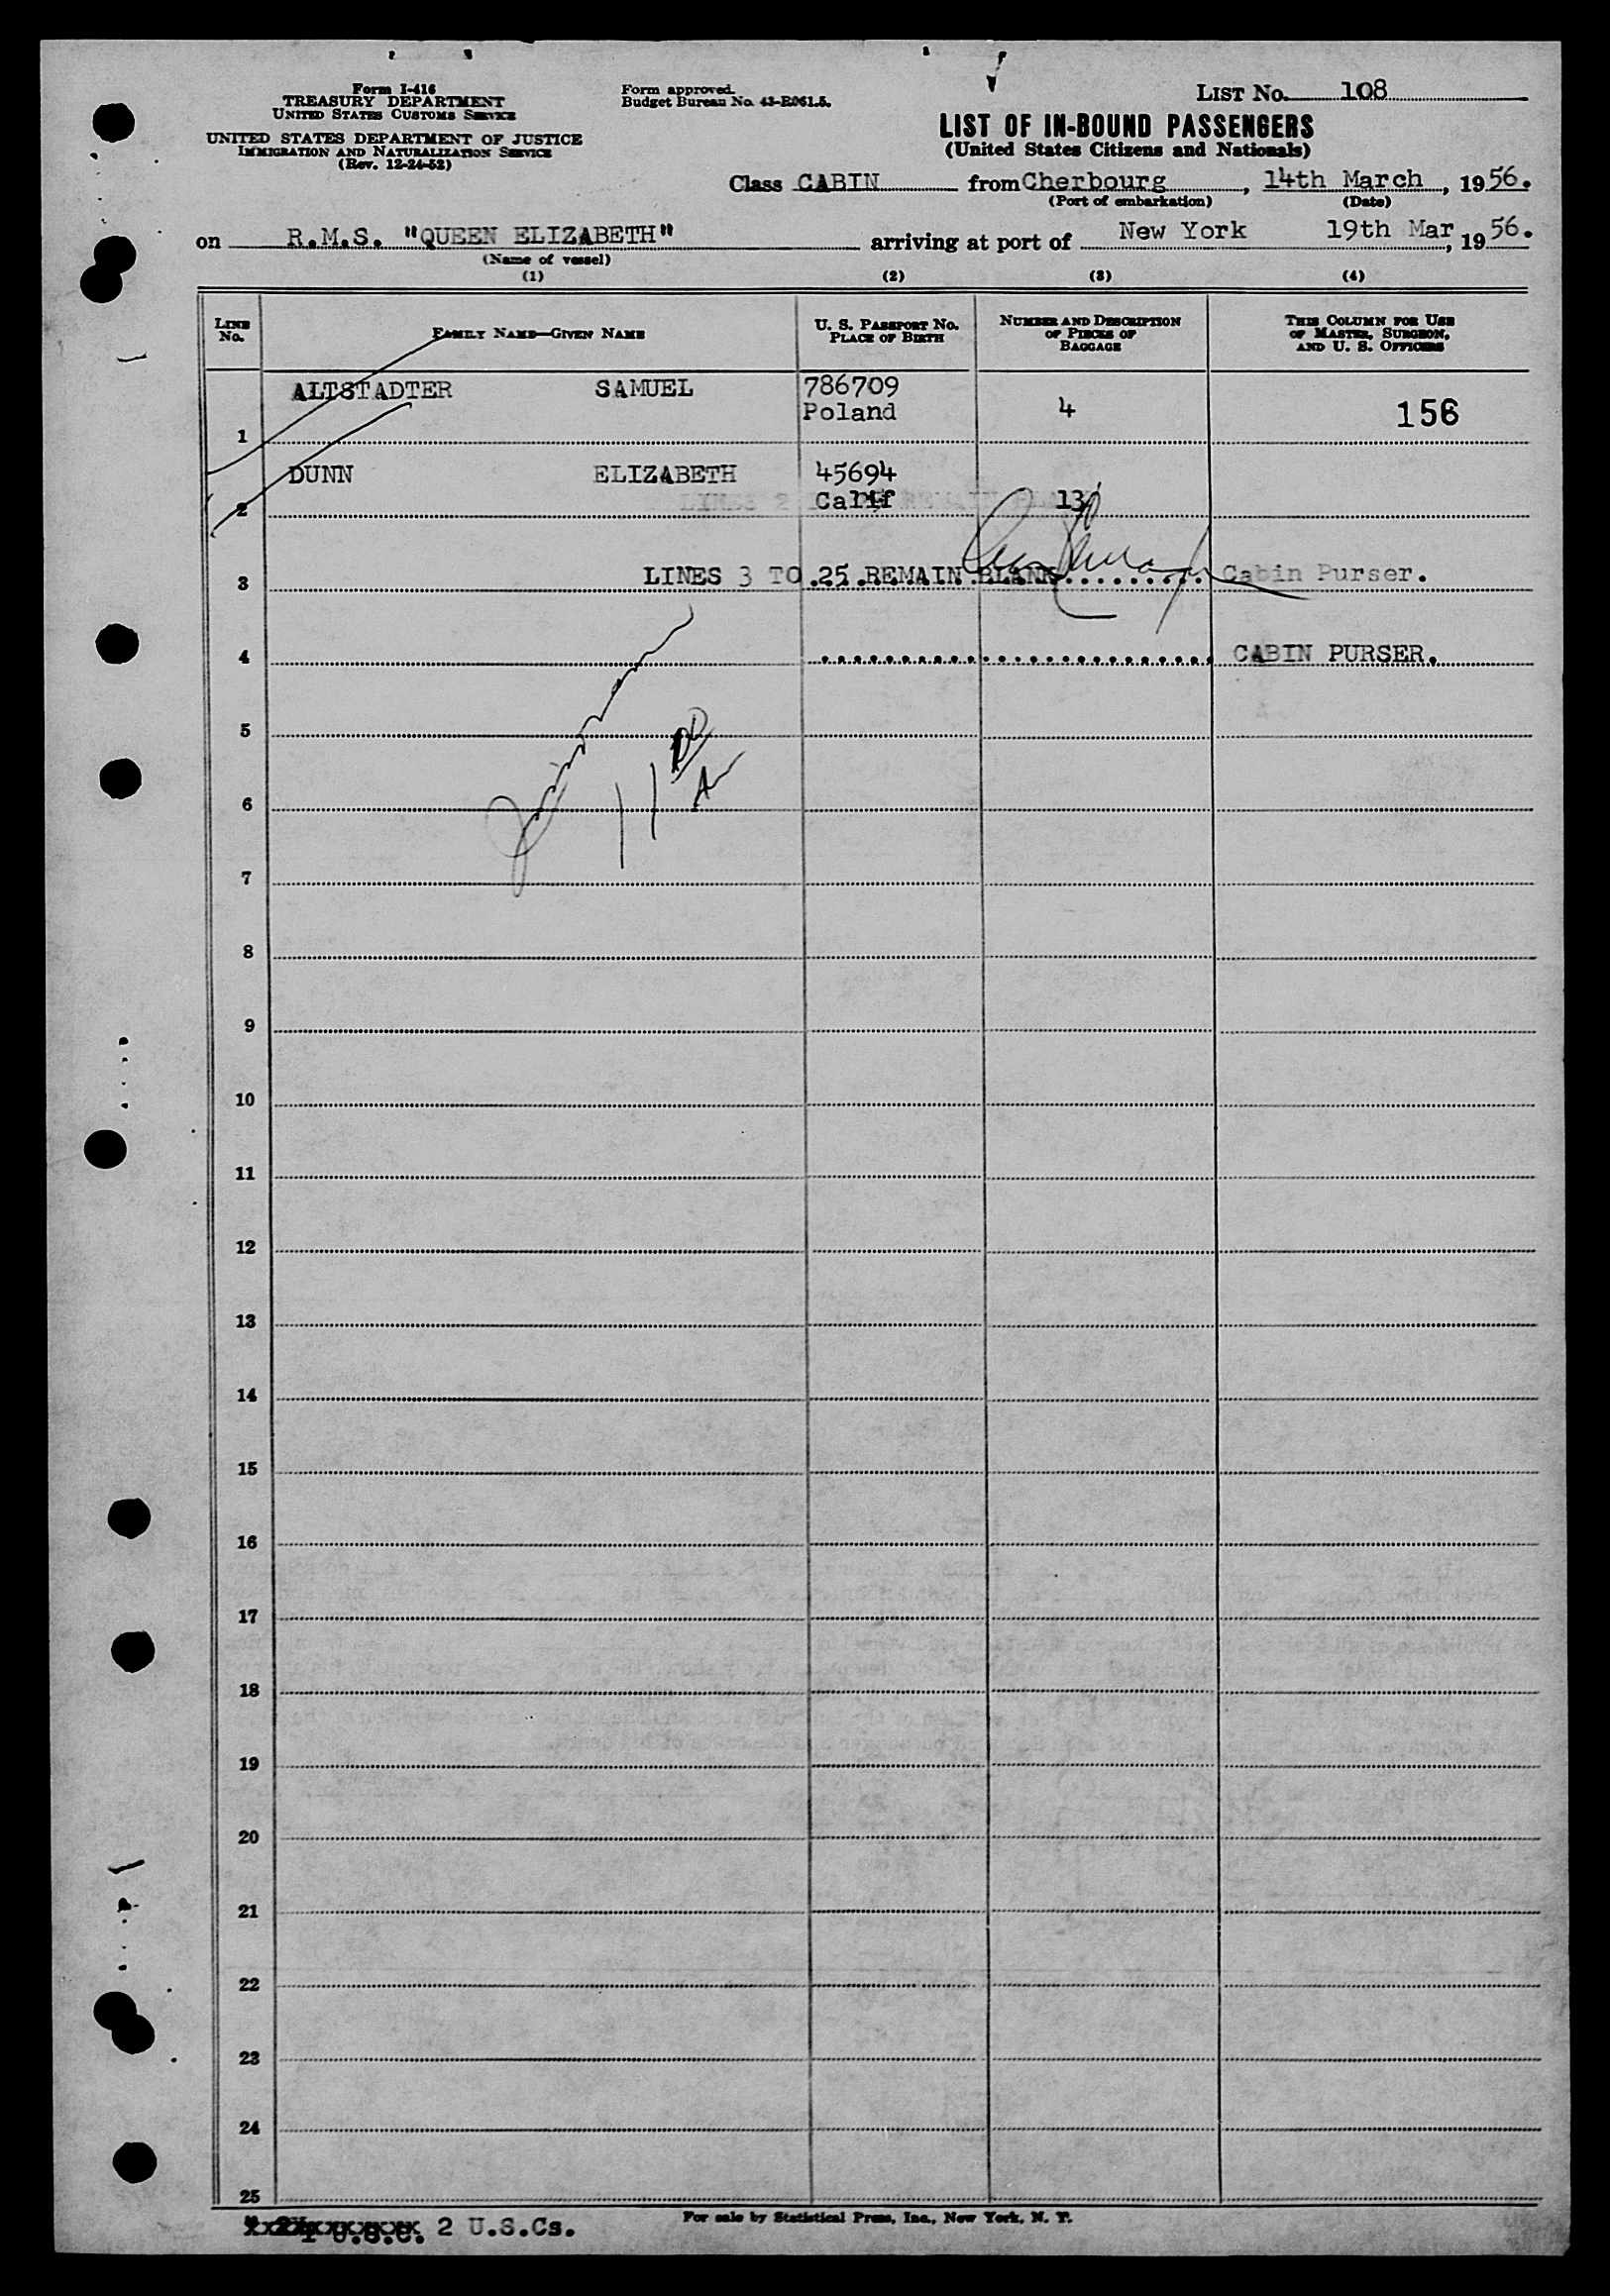 Form I-416
TREASURY DEPARTMENT
UNITED STATES CUSTOMS SERVICE
UNITED STATES DEPARTMENT OF JUSTICE
IMMIGRATION AND NATURALIZATION SERVICE
(Rev. 12-24-52)
Form approved.
Budget Bureau No. 43-R061.5.
LIST No. 108
LIST OF IN-BOUND PASSENGERS
(United States Citizens and Nationals)
Class CABIN from Cherbourg, 14th March, 1956.
(Port of embarkation) (Date)
on R.M.S. "QUEEN ELIZABETH" arriving at port of New York 19th Mar, 1956.
(Name of vessel)
(1) (2) (3) (4)
LINE No. FAMILY NAME—GIVEN NAME U. S. PASSPORT No. PLACE OF BIRTH NUMBER AND DESCRIPTION OF PIECES OF BAGGAGE THIS COLUMN FOR USE OF MASTER, SURGEON, AND U. S. OFFICERS
ALTSTADTER SAMUEL 786709
Poland 4 156
1
DUNN ELIZABETH 45694
2 Calif 13
3 LINES 3 TO 25 REMAIN BLANK Cabin Purser.
4 CABIN PURSER.
5
6
7
8
9
10
11
12
13
14
15
16
17
18
19
20
21
22
23
24
25
2 U.S.Cs.
For sale by Statistical Press, Inc., New York, N. Y.